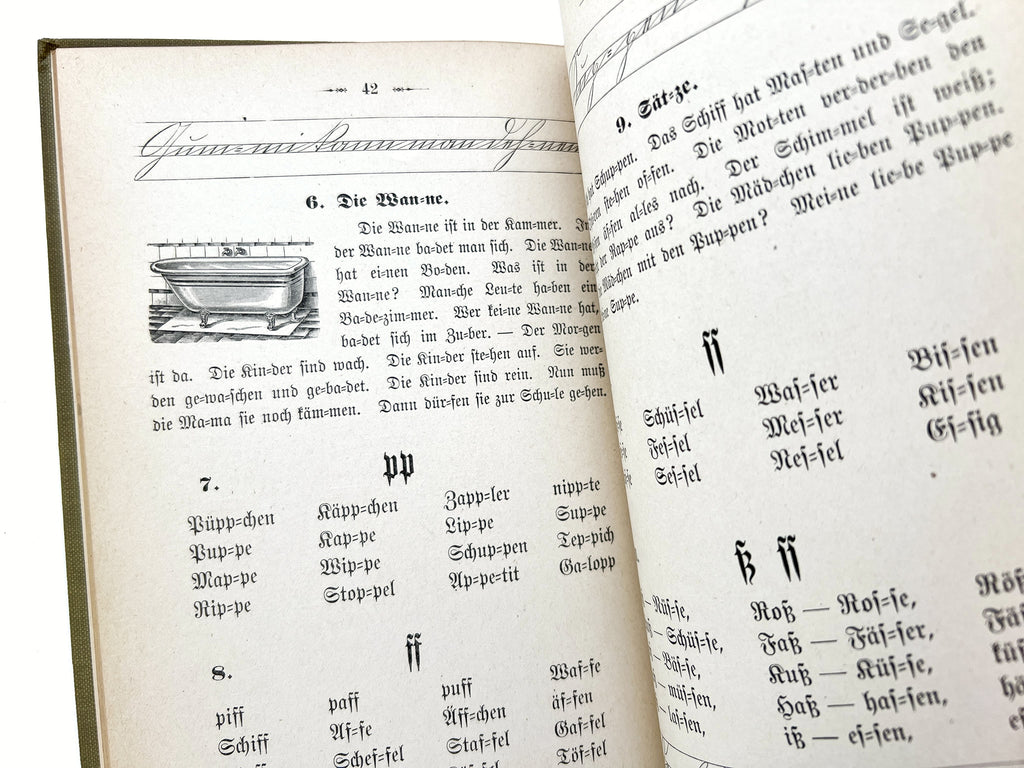 42
Gum=mi kann man deh=nen
6. Die Wan=ne.
Die Wan=ne ist in der Kam=mer. In
der Wan=ne ba=det man sich. Die Wan=ne
hat ei=nen Bo=den. Was ist in der
Wan=ne? Man=che Leu=te ha=ben ein
Ba=de=zim=mer. Wer kei=ne Wan=ne hat,
ba=det sich im Zu=ber. — Der Mor=gen
ist da. Die Kin=der sind wach. Die Kin=der ste=hen auf. Sie wer=
den ge=wa=schen und ge=ba=det. Die Kin=der sind rein. Nun muß
die Ma=ma sie noch käm=men. Dann dür=fen sie zur Schu=le gehen.
7. pp
Püpp=chen Käpp=chen Zapp=ler nipp=te
Pup=pe Kap=pe Lip=pe Sup=pe
Map=pe Wip=pe Schup=pen Tep=pich
Rip=pe Stop=pel Ap=pe=tit Ga=lopp
8. ff
piff paff puff Waf=fe
Schiff Af=fe Äff=chen äf=fen
Schef=fel Staf=fel Gaf=fel
Töf=fel
9. Sät=ze.
Schup=pen. Das Schiff hat Mas=ten und Se=gel.
ste=hen of=fen. Die Mot=ten ver=der=ben den
äf=fen al=les nach. Der Schim=mel ist weiß;
der Rap=pe aus? Die Mäd=chen lie=ben Pup=pen.
Mäd=chen mit den Pup=pen? Mei=ne lie=be Pup=pe
Sup=pe.
ss
Schüs=sel Was=ser Bis=sen
Fes=sel Mes=ser Kis=sen
Ses=sel Nes=sel Es=sig
ß ss
— Nüs=se, Roß — Ros=se,
— Schüs=se, Faß — Fäs=ser,
— Bäs=se, Kuß — Küs=se,
— müs=sen, Haß — has=sen,
— las=sen, iß — es=sen,